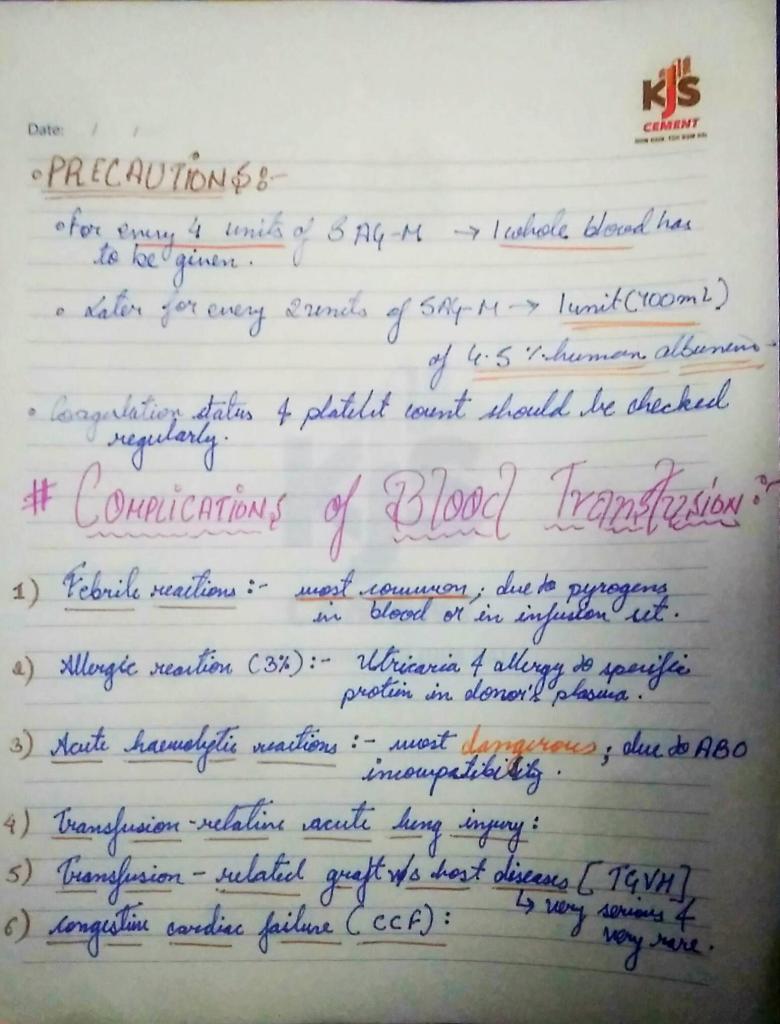 KJS
CEMENT
Date: / /
• PRECAUTIONS :-
• For every 4 units of SAG-M → 1 whole blood has
to be given.
• Later for every 2 units of SAG-M → 1 unit (400mL)
of 4.5 % human albumin.
• Coagulation status & platelet count should be checked
regularly.
# COMPLICATIONS of Blood Transfusion :-
1) Febrile reactions :- most common ; due to pyrogens
in blood or in infusion set.
2) Allergic reaction (3%) :- Utricaria & allergy to specific
protein in donor's plasma.
3) Acute haemolytic reactions :- most dangerous ; due to ABO
incompatibility.
4) Transfusion-relative acute lung injury :
5) Transfusion - related graft v/s host diseases [TGVH]
↳ very serious &
very rare.
6) congestive cardiac failure (CCF) :